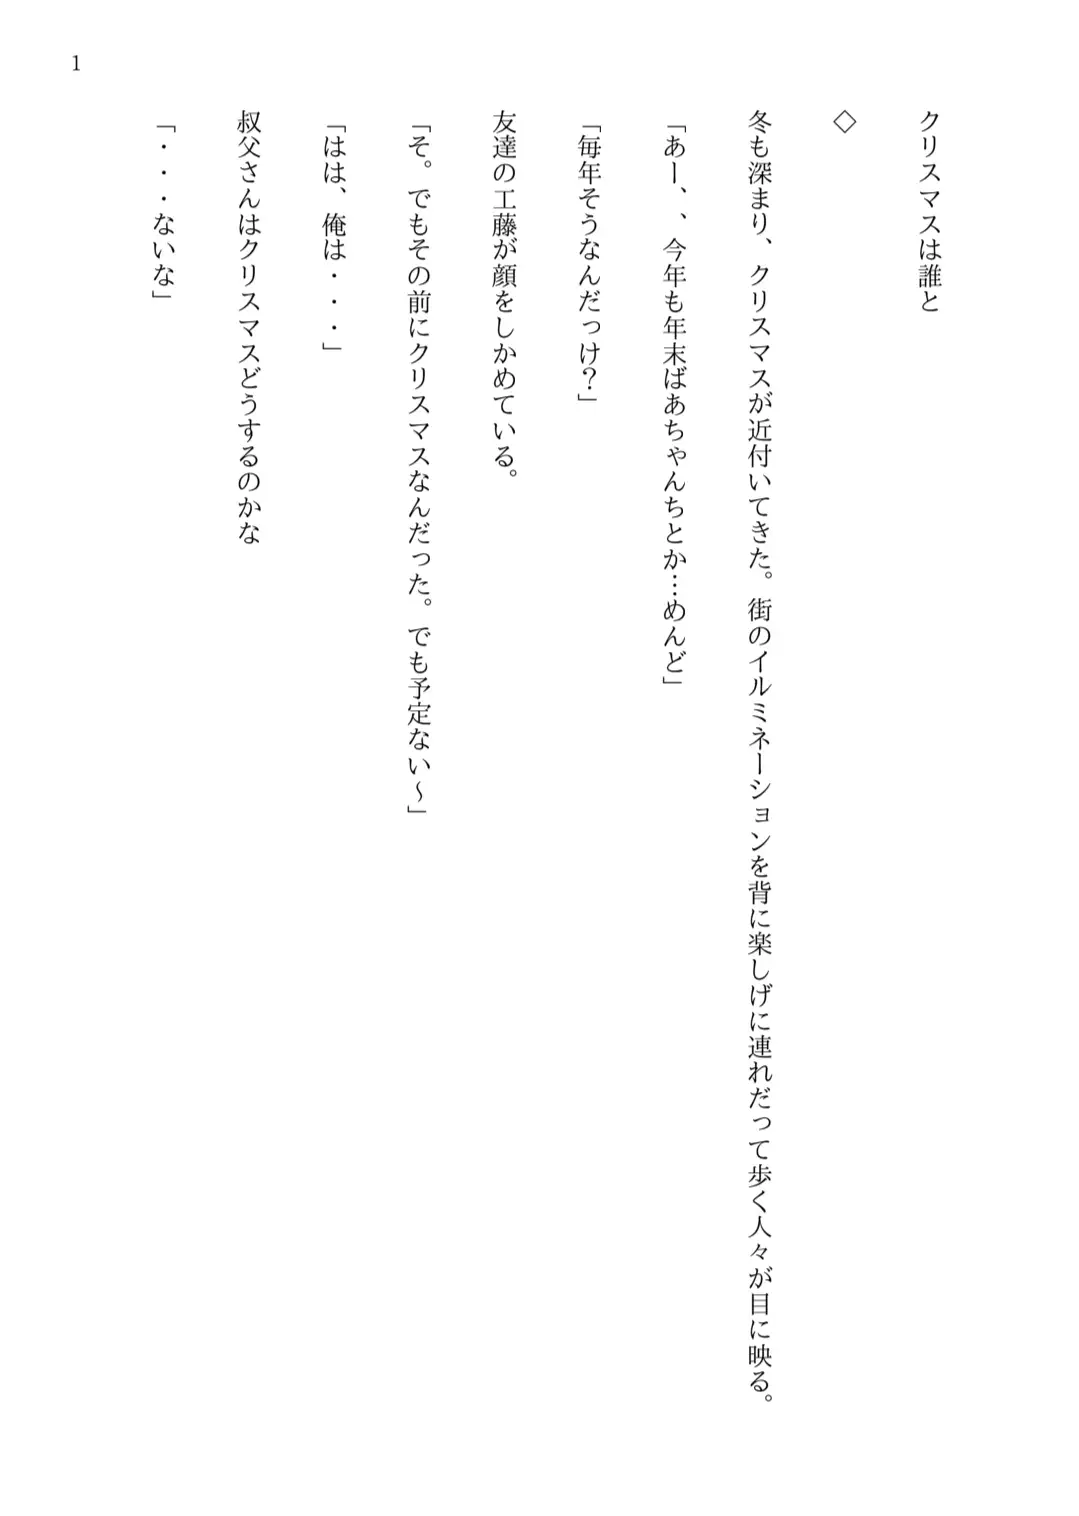 クリスマスは誰と
◇
冬も深まり、クリスマスが近付いてきた。街のイルミネーションを背に楽しげに連れだって歩く人々が目に映る。
「あー、、今年も年末ばあちゃんちとか…めんど」
「毎年そうなんだっけ？」
友達の工藤が顔をしかめている。
「そ。でもその前にクリスマスなんだった。でも予定ない〜」
「はは、俺は・・・」
叔父さんはクリスマスどうするのかな
「・・・ないな」
1